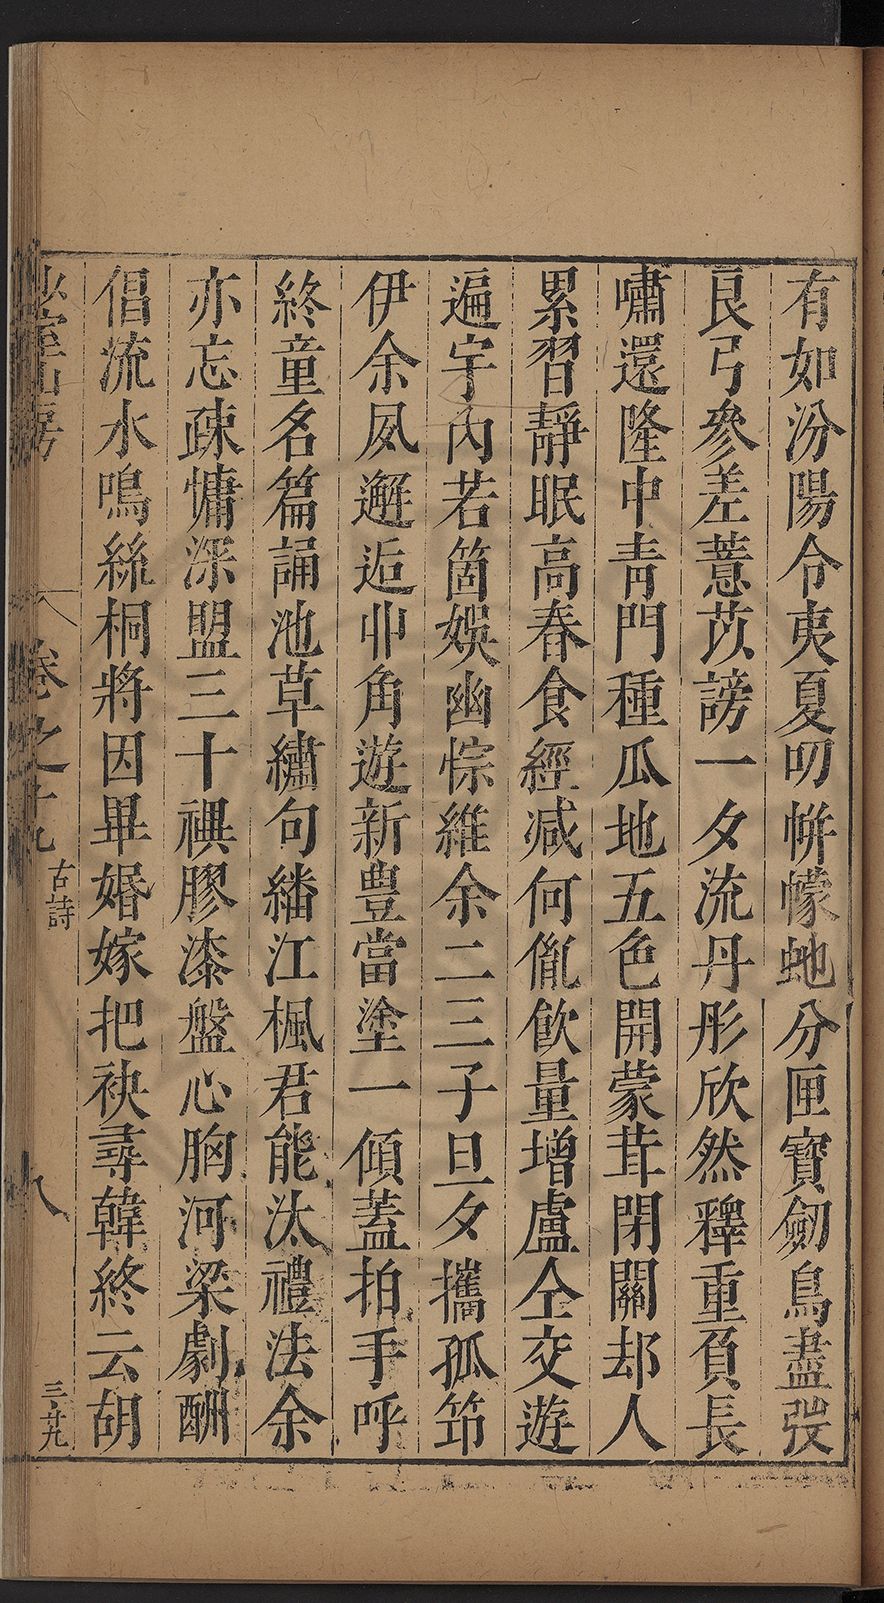 有如汾陽令夷夏叨帡幪虵分匣寶劒鳥盡弢
良弓參差薏苡謗一夕流丹彤欣然釋重負長
嘯還隆中青門種瓜地五色開蒙茸閉關却人
累習靜眠高舂食經减何胤飲量增盧仝交遊
遍宇內若箇娛幽悰維余二三子旦夕攜孤筇
伊余夙邂逅丱角遊新豊當塗一傾蓋拍手呼
終童名篇誦池草繡句繙江楓君能汰禮法余
亦忘疎慵深盟三十禩膠漆盤心胸河梁劇酬
倡流水鳴絲桐將因畢婚嫁把袂尋韓終云胡
少室山房
卷之十九
古詩
八
三廿九